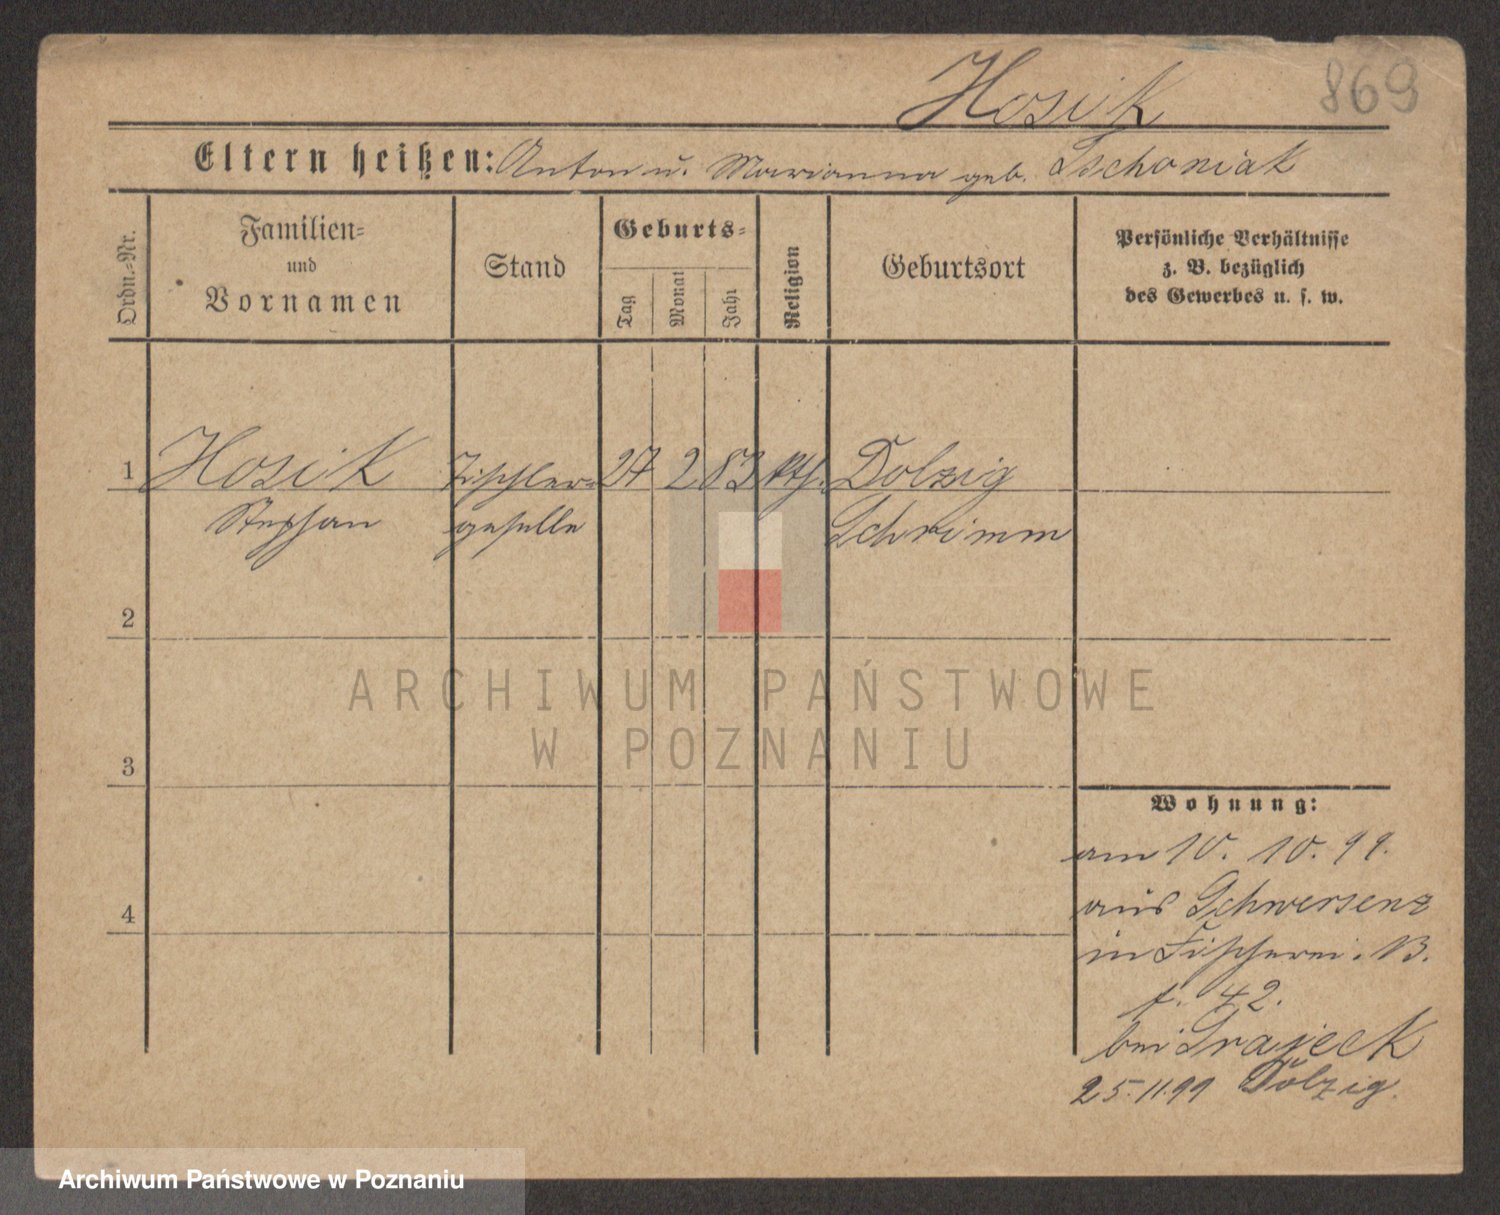 Hosik
869
Eltern heißen: Anton u. Marianna geb. Tschoniak
Ordn.=Nr.
Familien=
und
Vornamen
Stand
Geburts=
Tag
Monat
Jahr
Religion
Geburtsort
Persönliche Verhältnisse
z. B. bezüglich
des Gewerbes u. s. w.
1 Hosik Tischler= 27 2 83 kth. Dolzig
Stephan geselle Schrimm
2
3
4
ARCHIWUM PAŃSTWOWE
W POZNANIU
Wohnung:
am 10. 10. 99.
aus Schwersenz
in Fischerei. B.
f. 42.
bei Grajeck
25.11.99 Dolzig.
Archiwum Państwowe w Poznaniu